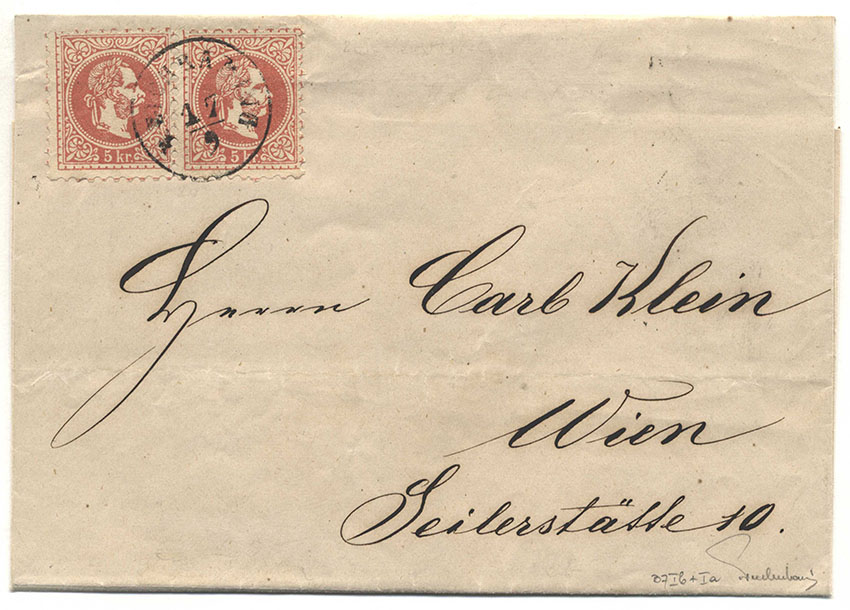 5 kr. 5 kr.
17
9
Herrn Carl Klein
Wien
Seilerstätte 10.
37Ib+Ia